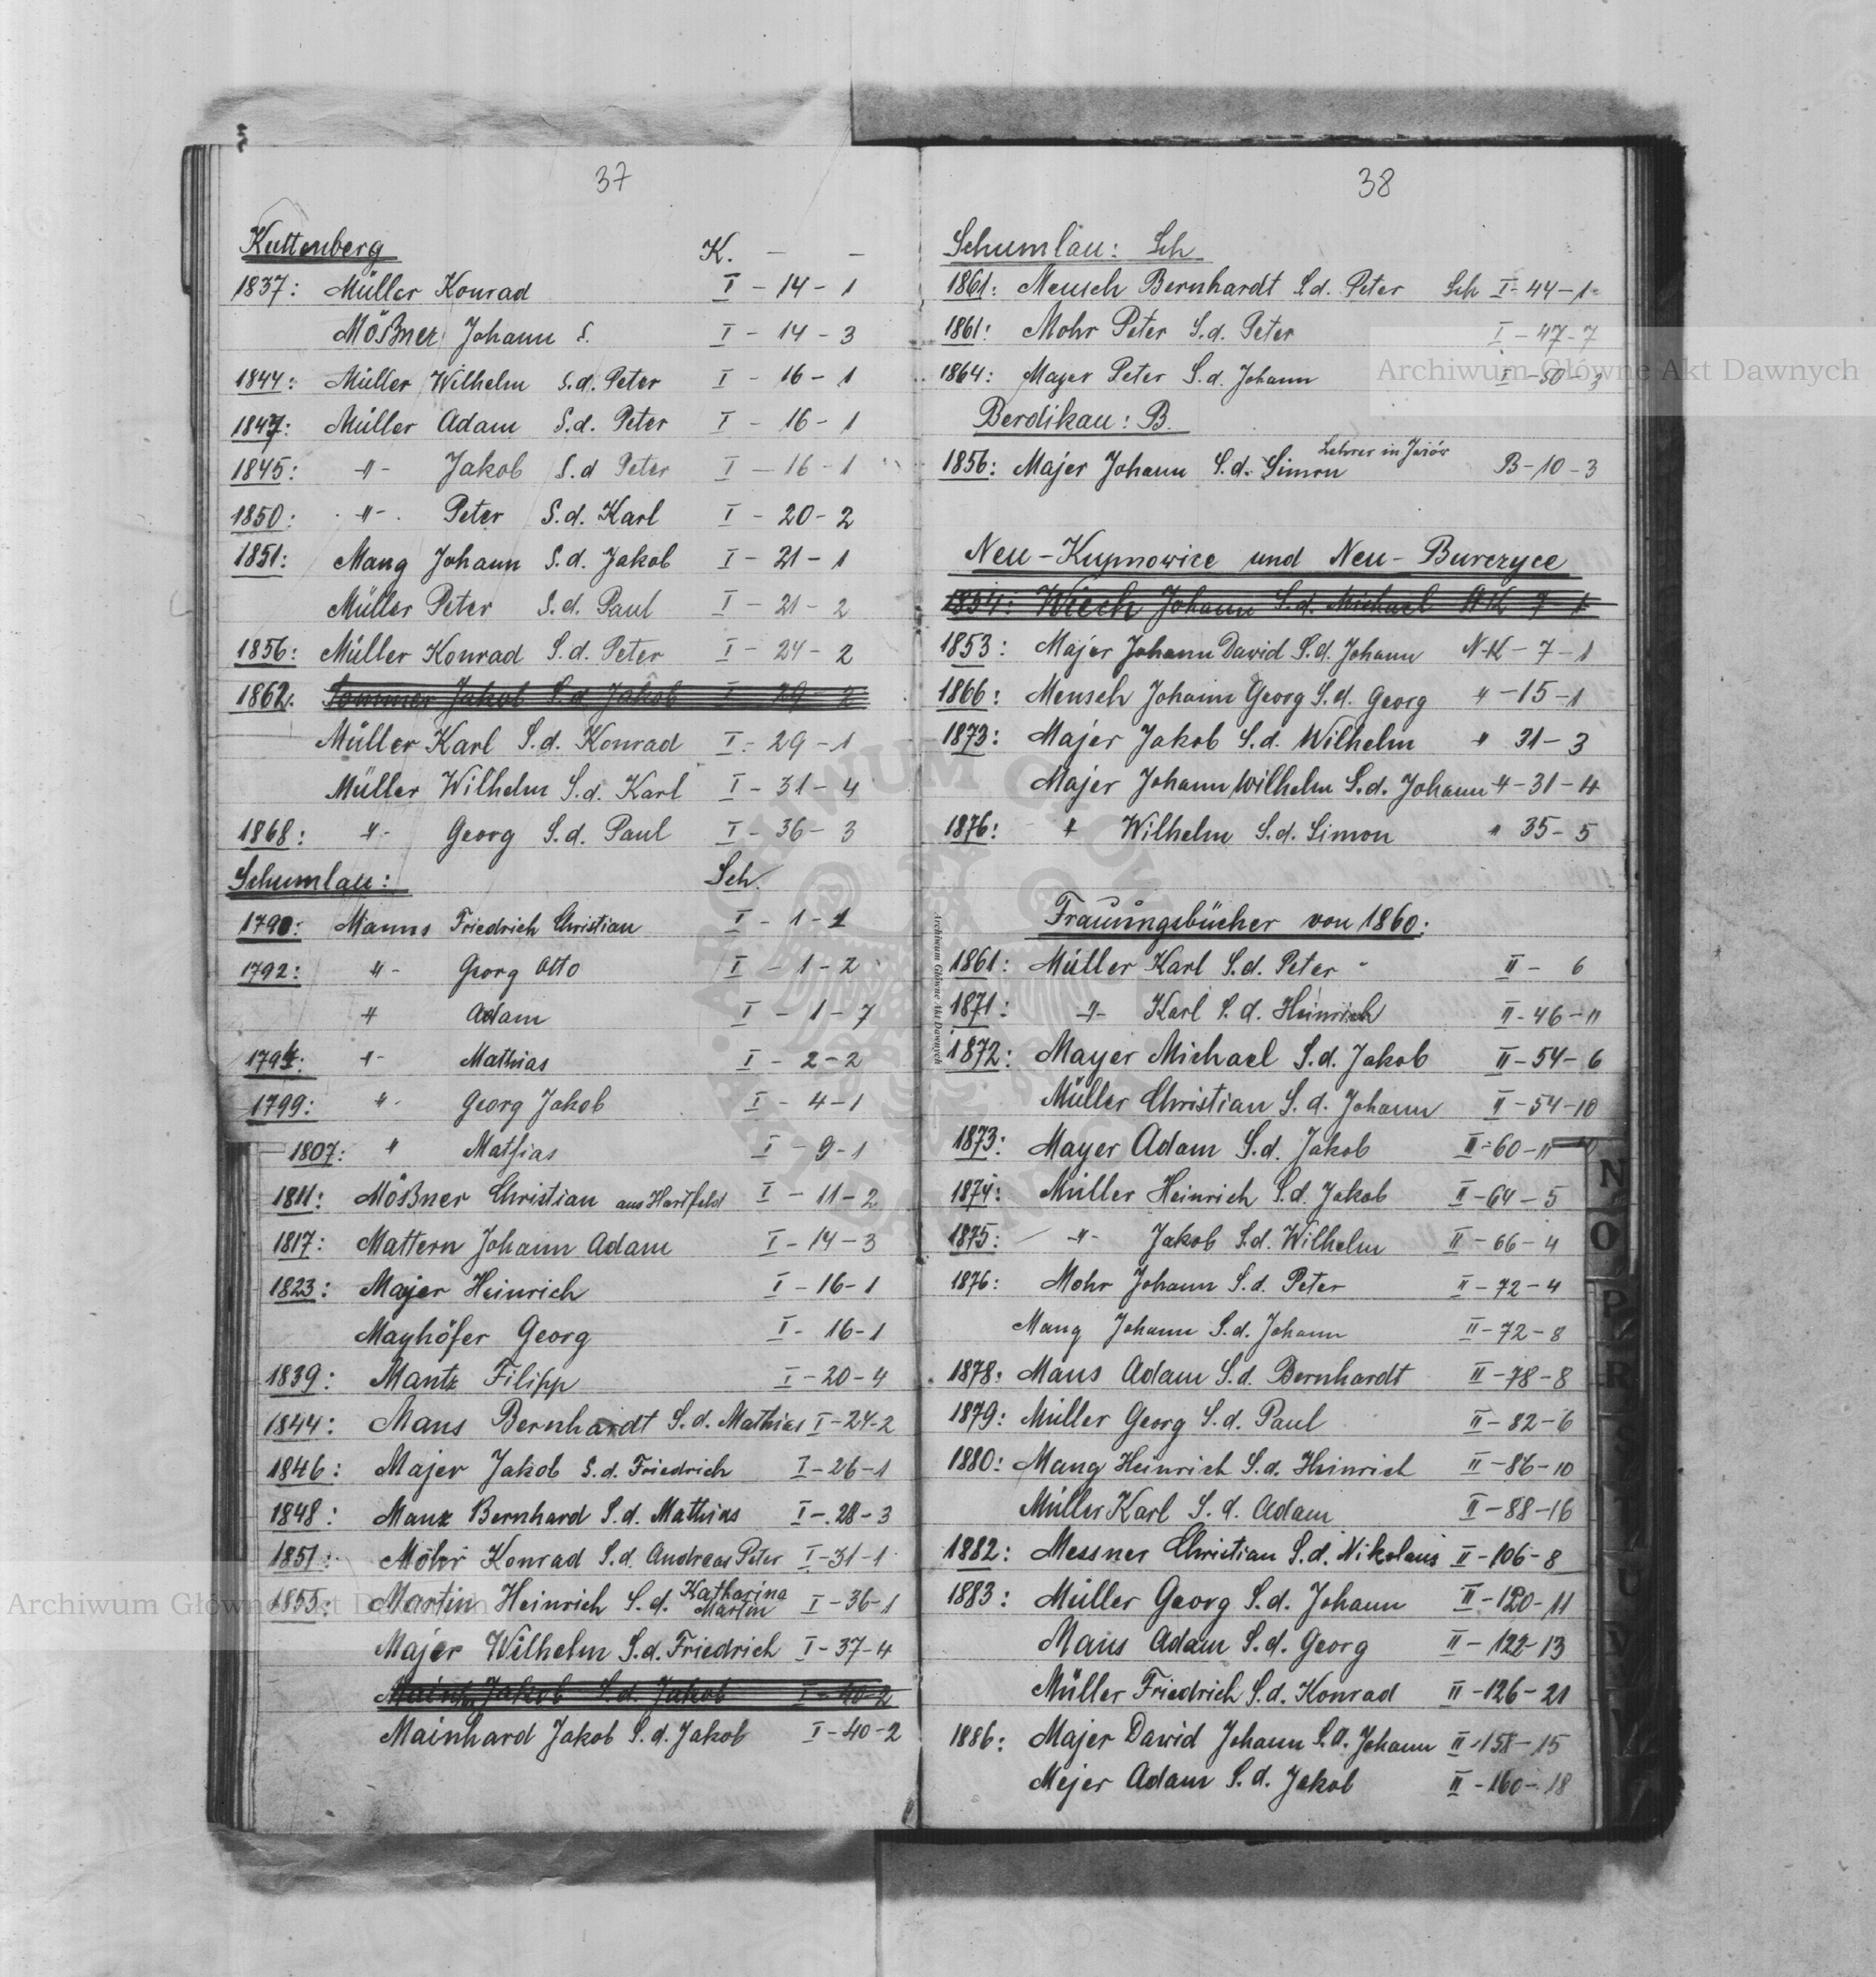 37
Kuttenberg K. - -
1837: Müller Konrad I - 14 - 1
Mößner Johann S. I - 14 - 3
1844: Müller Wilhelm S.d. Peter I - 16 - 1
1847: Müller Adam S.d. Peter I - 16 - 1
1845: -"- Jakob S.d Peter I - 16 - 1
1850: -"- Peter S.d. Karl I - 20 - 2
1851: Mang Johann S.d. Jakob I - 21 - 1
Müller Peter S.d. Paul I - 21 - 2
1856: Müller Konrad S.d. Peter I - 24 - 2
1862: Sommer Jakob S.d Jakob I - 29 - 2
Müller Karl S.d. Konrad I - 29 - 1
Müller Wilhelm S.d. Karl I - 31 - 4
1868: -"- Georg S.d. Paul I - 36 - 3
Schumlau: Sch.
1790: Manns Friedrich Christian I - 1 - 1
1792: "- Georg Otto I - 1 - 2
" Adam I - 1 - 7
1794: "- Mathias I - 2 - 2
1799: "- Georg Jakob I - 4 - 1
1807: " Mathias I - 9 - 1
1811: Mößner Christian aus Hartfeld I - 11 - 2
1817: Mattern Johann Adam I - 14 - 3
1823: Majer Heinrich I - 16 - 1
Mayhöfer Georg I - 16 - 1
1839: Mantz Filipp I - 20 - 4
1844: Mans Bernhardt S.d. Mathias I - 24 - 2
1846: Majer Jakob S.d. Friedrich I - 26 - 1
1848: Manz Bernhard S.d. Mathias I - 28 - 3
1851: Mohr Konrad S.d. Andreas Peter I - 31 - 1
1855: Martin Heinrich S.d. Katharina Martin I - 36 - 1
Majer Wilhelm S.d. Friedrich I - 37 - 4
Jakob S.d. Jakob I - 40 - 2
Mainhard Jakob S.d. Jakob I - 40 - 2
38
Schumlau: Sch
1861: Mensch Bernhardt S.d. Peter Sch I - 44 - 1
1861: Mohr Peter S.d. Peter I - 47 - 7
1864: Mayer Peter S.d. Johann I - 50 - 3
Berdikau: B.
1856: Majer Johann S.d. Simon Lehrer in Jasów B - 10 - 3
Neu-Kupnowice und Neu-Burczyce
1854: Wiech Johann S.d. Michael NK 7 1
1853: Majer Johann David S.d. Johann N-K - 7 - 1
1866: Mensch Johann Georg S.d. Georg " - 15 - 1
1873: Majer Jakob S.d. Wilhelm " 31 - 3
Majer Johann Wilhelm S.d. Johann " - 31 - 4
1876: " Wilhelm S.d. Simon " 35 - 5
Trauungsbücher von 1860:
1861: Müller Karl S.d. Peter II - 6
1871: -"- Karl S.d. Heinrich II - 46 - 11
1872: Mayer Michael S.d. Jakob II - 54 - 6
Müller Christian S.d. Johann II - 54 - 10
1873: Mayer Adam S.d. Jakob II - 60 - 11
1874: Müller Heinrich S.d. Jakob II - 64 - 5
1875: -"- Jakob S.d. Wilhelm II - 66 - 4
1876: Mohr Johann S.d. Peter II - 72 - 4
Mang Johann S.d. Johann II - 72 - 8
1878: Maus Adam S.d. Bernhardt II - 78 - 8
1879: Müller Georg S.d. Paul II - 82 - 6
1880: Mang Heinrich S.d. Heinrich II - 86 - 10
Müller Karl S.d. Adam II - 88 - 16
1882: Messner Christian S.d. Nikolaus II - 106 - 8
1883: Müller Georg S.d. Johann II - 120 - 11
Maus Adam S.d. Georg II - 122 - 13
Müller Friedrich S.d. Konrad II - 126 - 21
1886: Majer Dawid Johann S.d. Johann II - 158 - 15
Mejer Adam S.d. Jakob II - 160 - 18
N
O
P
R
S
T
U
V
Archiwum Główne Akt Dawnych
Archiwum Główne Akt Dawnych
Archiwum Główne Akt Dawnych